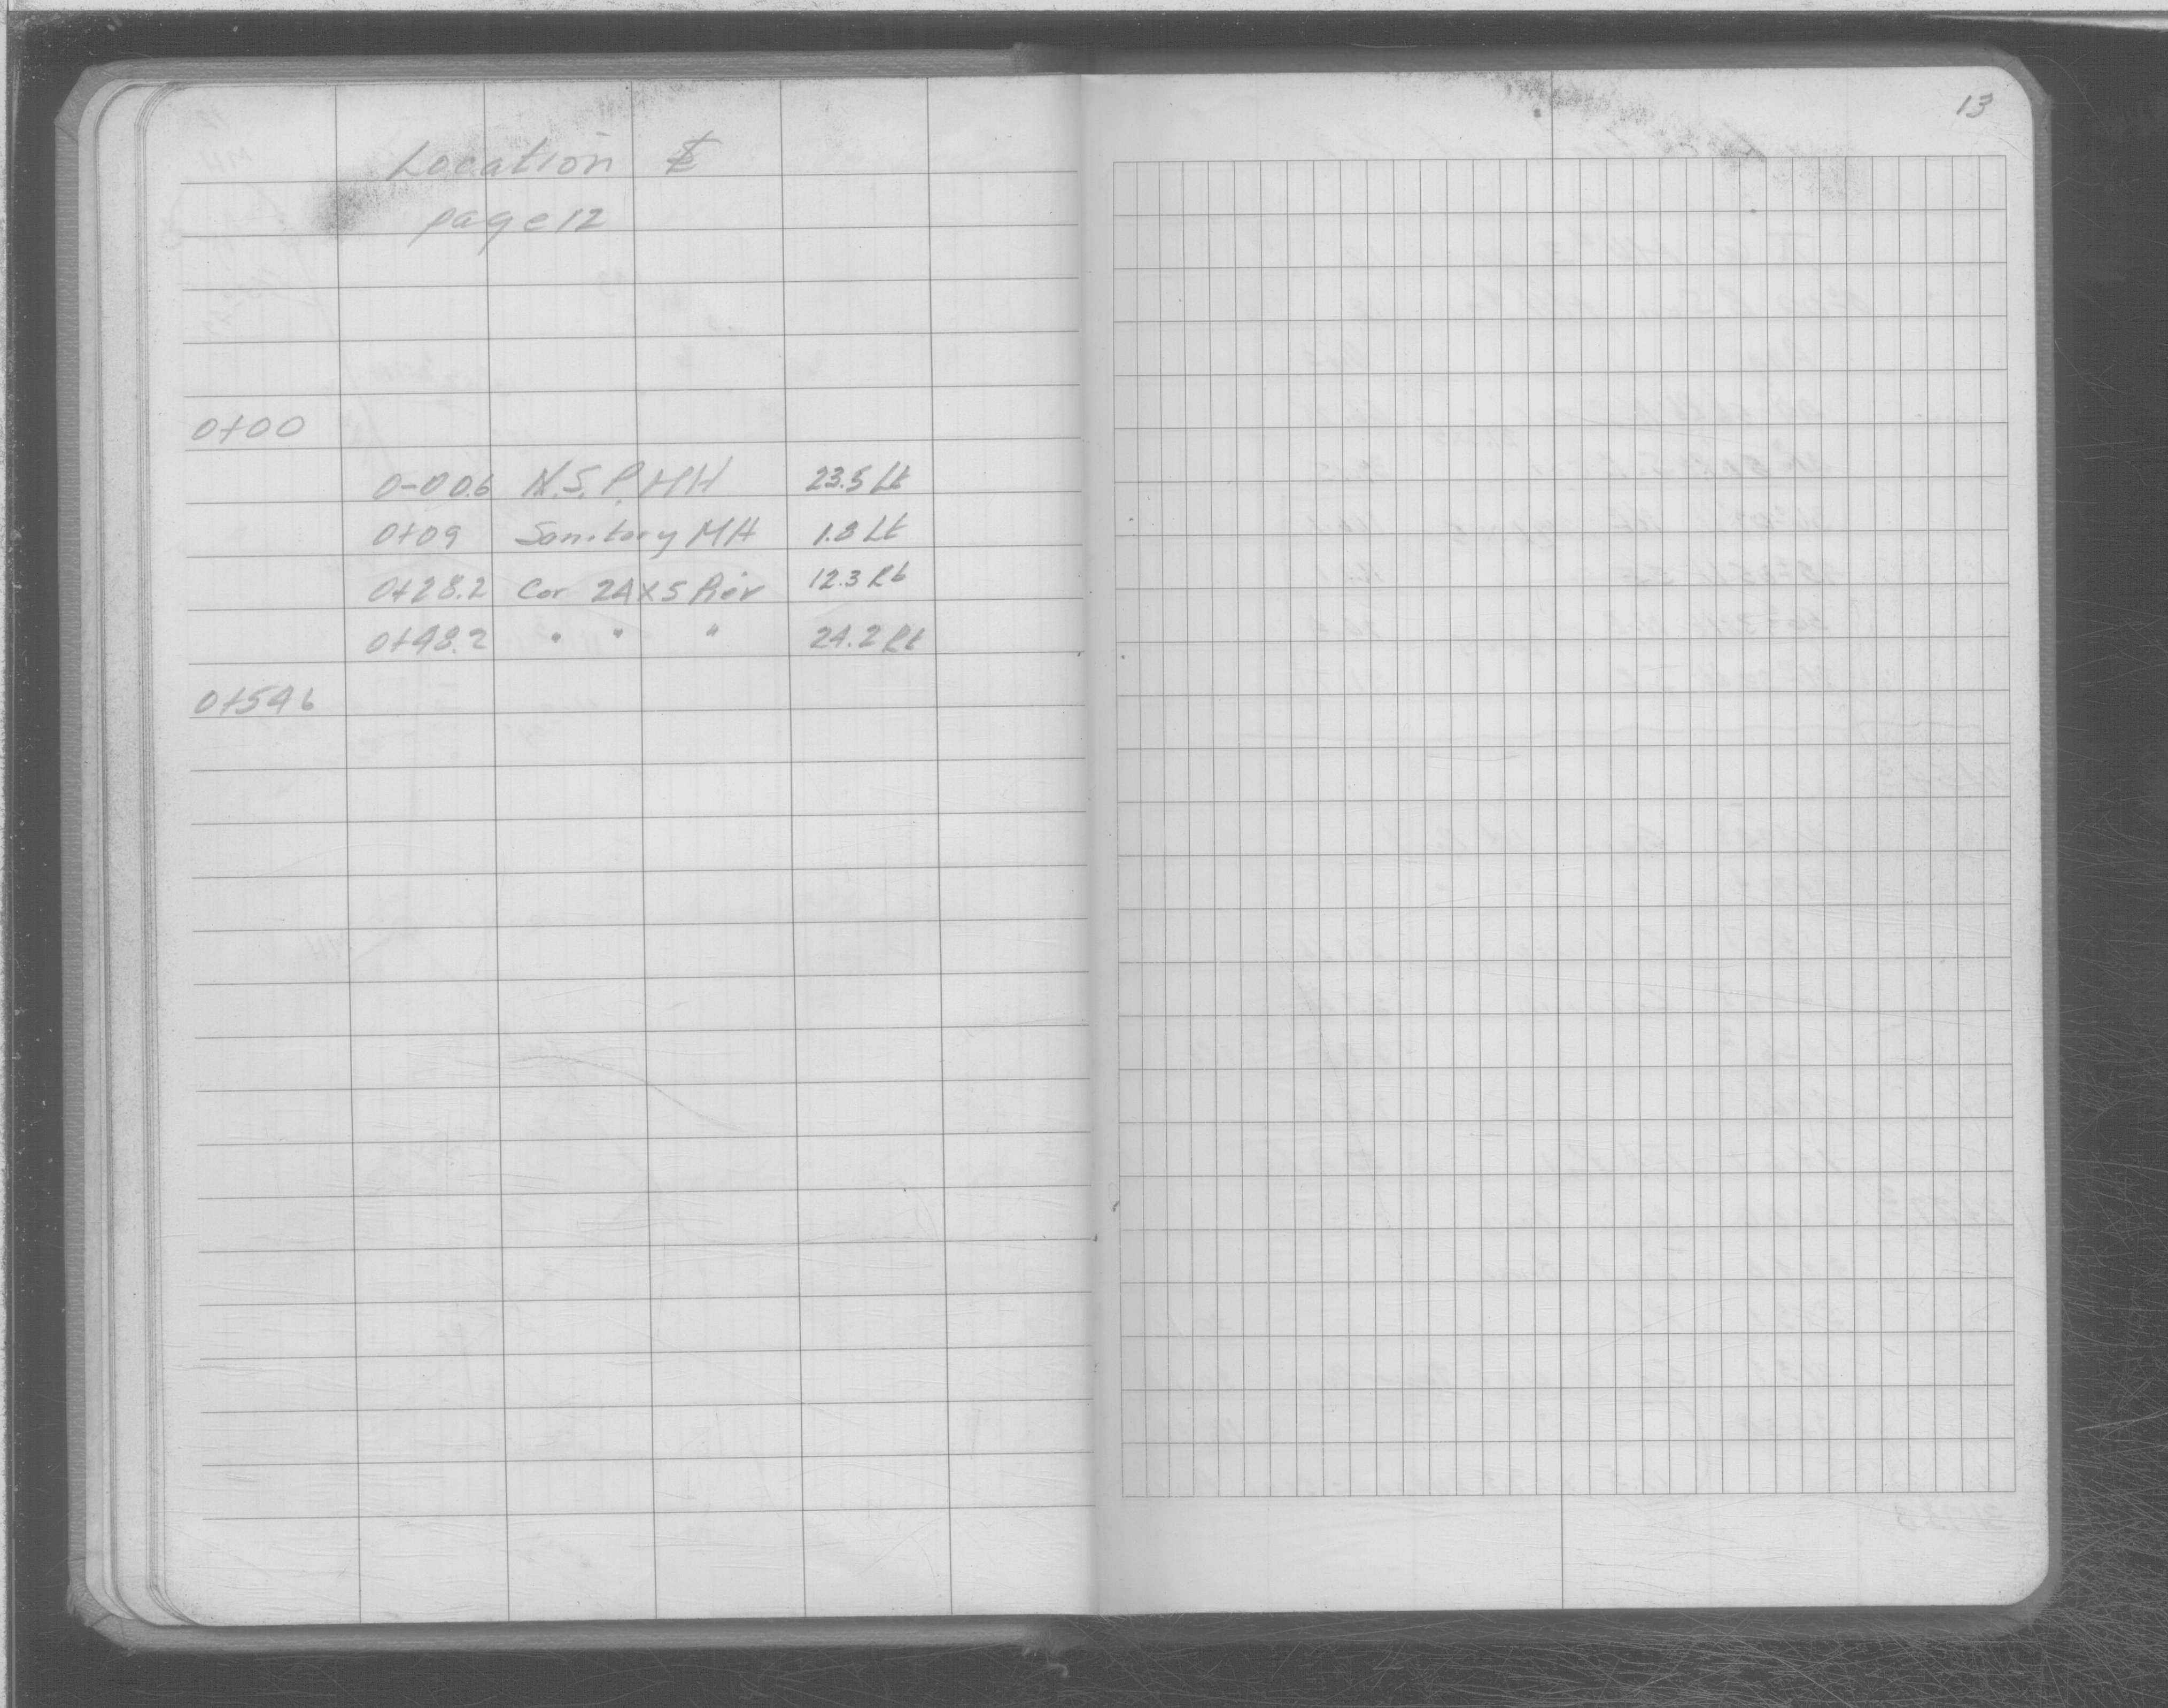 13
Location ℄
page 12
0+00
0-00.6 N.S.P. MH 23.5 Lt
0+09 Sanitary MH 1.8 Lt
0+28.2 Cor 24x5 Pier 12.3 Rt
0+48.2 " " " 24.2 Rt
0+54.6